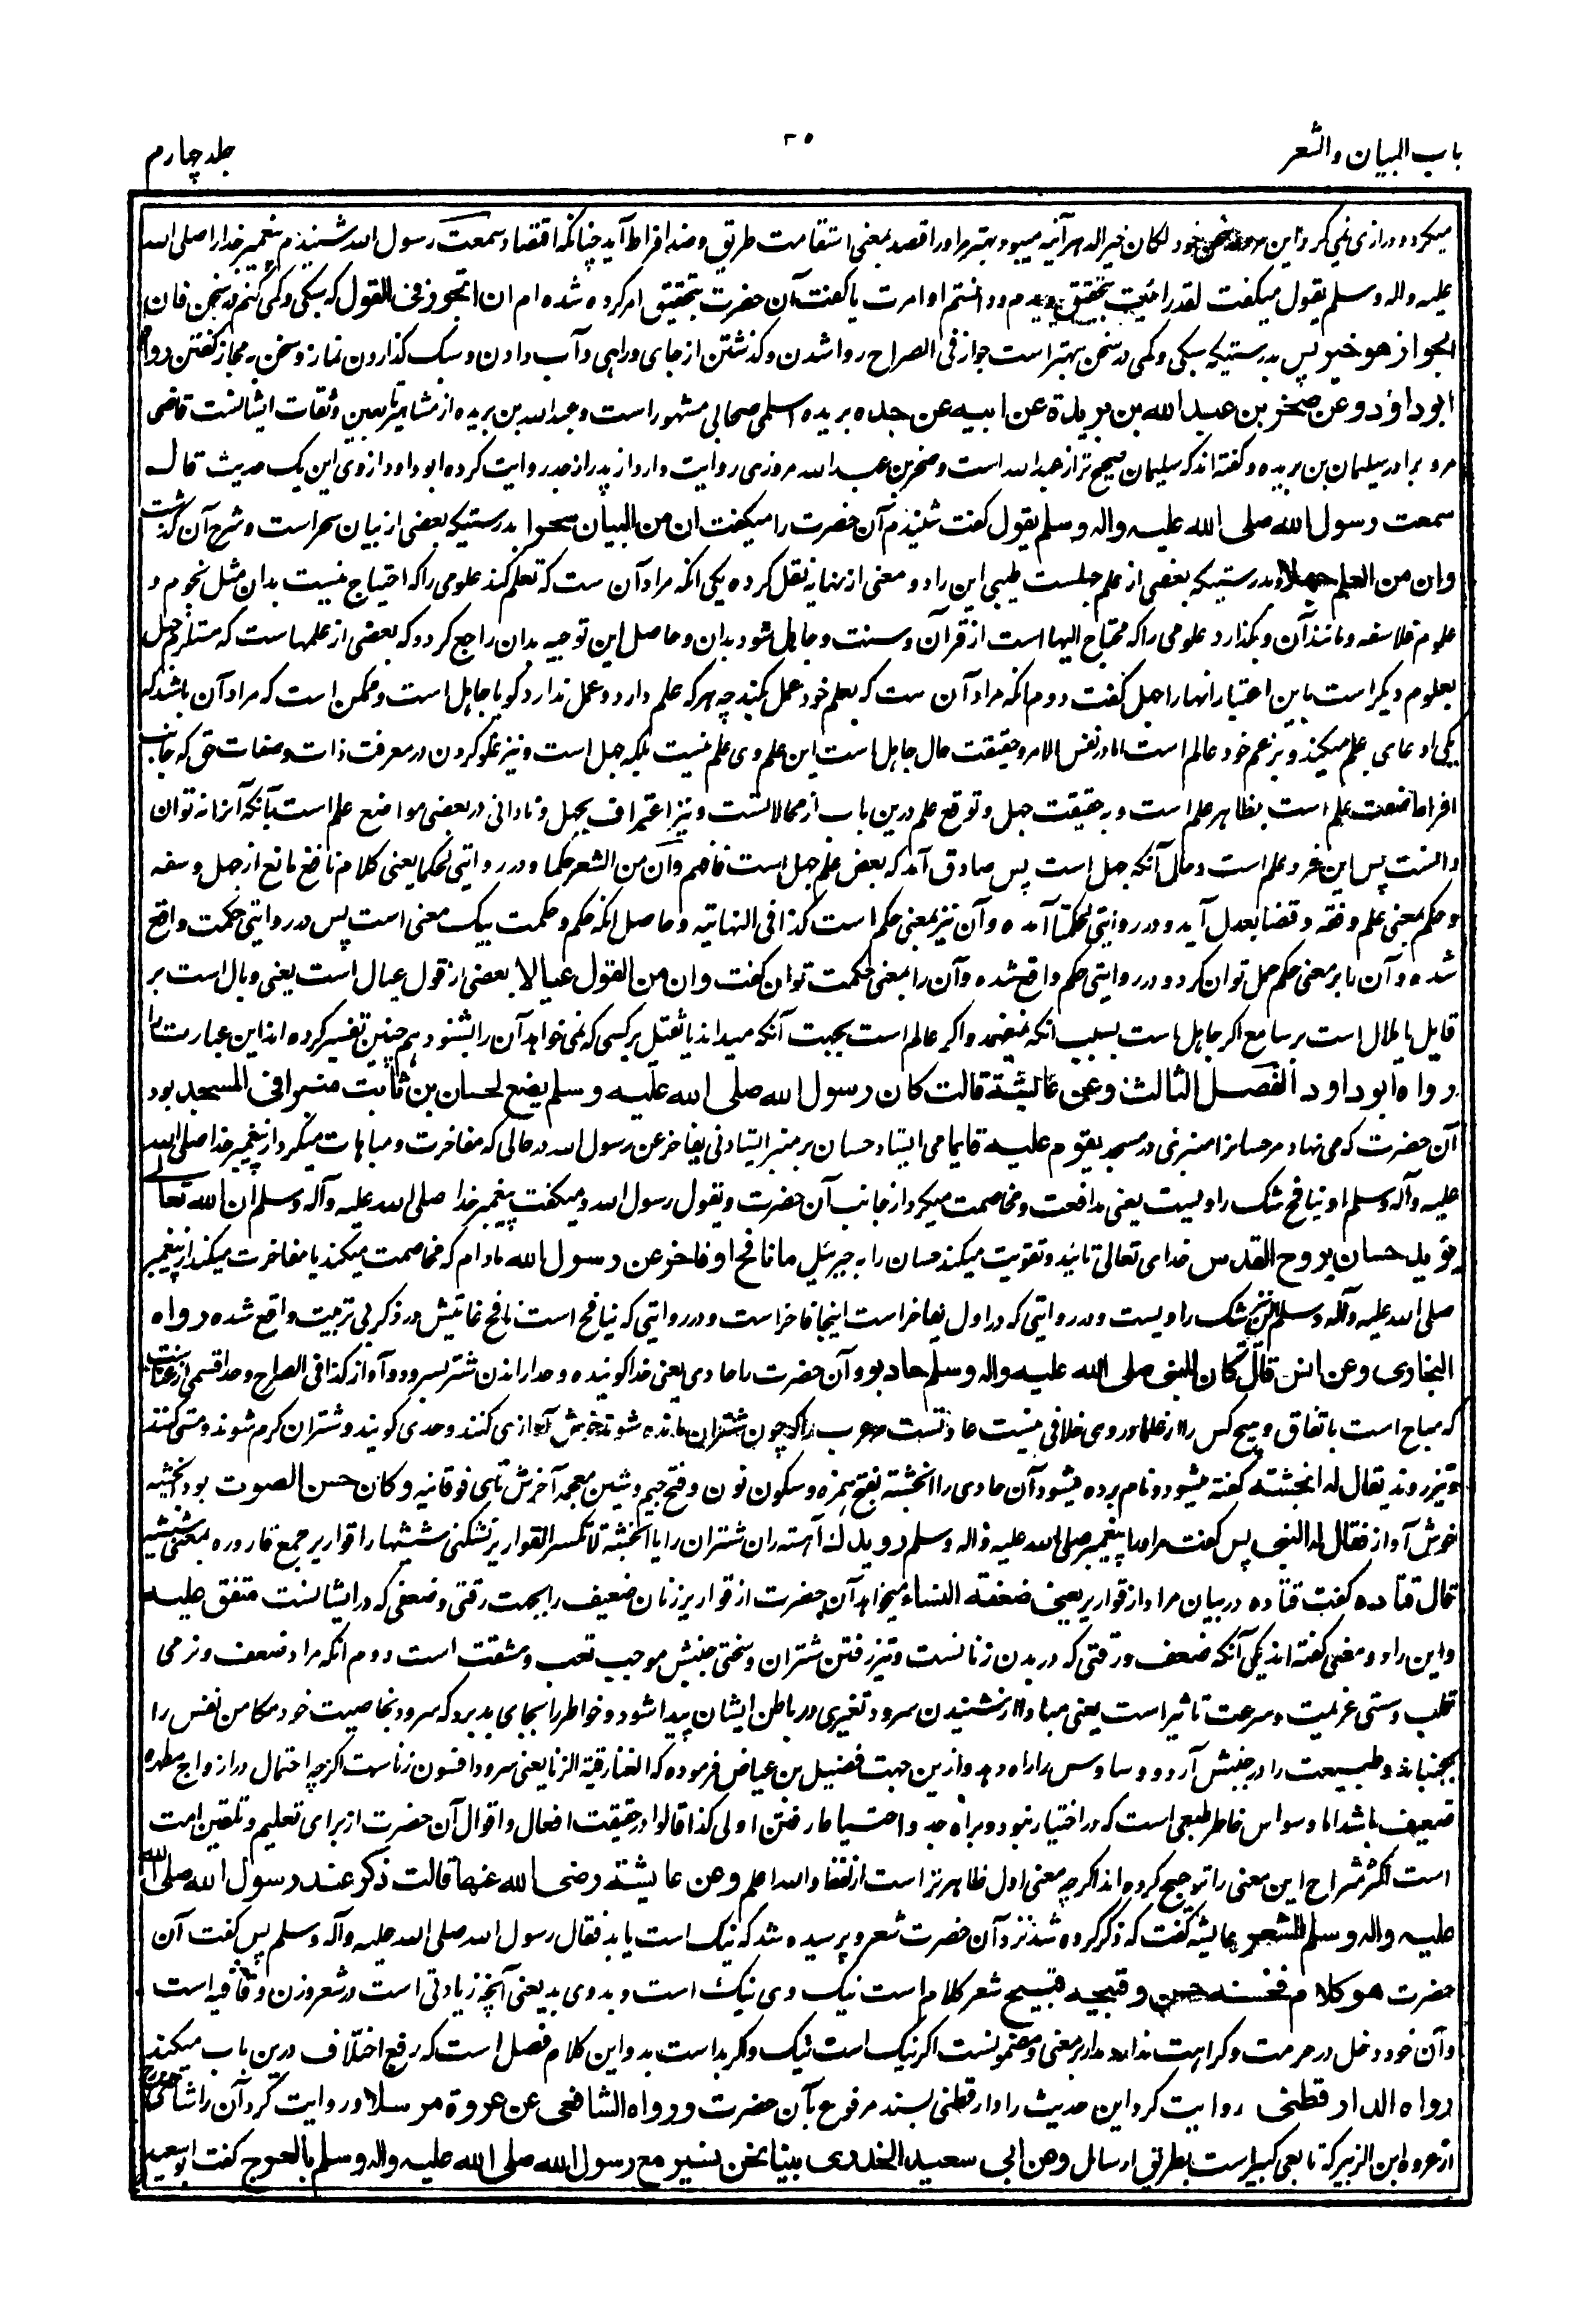 باب البیان والشعر
جلد چهارم
میکرد و درازی نمی کرد این سخن خود لکان خیرا له هر آئینه میبود بهتر مر او را قصد بمعنی استقامت طریق و ضد افراط آید چنانکه اقتصاد سمعت رسول الله شنیدم پیغمبر خدا را صلی الله
علیه واله وسلم یقول میکفت لقد رائیت بتحقیق دیدم و دانستم او امرت یا کفت آن حضرت بتحقیق امر کرده شده ام ان اتجوز فی القول که سبکی و کمی کنم در سخن فان
الجواز هو خیر پس بدرستیکه سبکی و کمی در سخن بهتر است جواز فی الصراح روا شدن و کذشتن از جای و راهی و آب دادن و سبک کذاردن نماز و سخن به مجاز کفتن رواه
ابوداؤد وعن صخر بن عبد الله بن بریدة عن ابیه عن جده بریده اسلمی صحابی مشهور است و عبد الله بن بریده از مشاهیر تابعین و ثقات ایشانست قاضی
مرو برادر سلیمان بن بریده و کفته اند که سلیمان صحیح تر از عبد الله است و صخر بن عبد الله مروزی روایت دارد از پدر از جد روایت کرده ابو داود از وی این یک حدیث قال
سمعت رسول الله صلی الله علیه واله وسلم یقول کفت شنیدم آن حضرت را میکفت ان من البیان سحرا بدرستیکه بعضی از بیان سحر است و شرح آن کذشت
وان من العلم جهلا و بدرستیکه بعضی از علم جهلست طیبی این را دو معنی از نهایه نقل کرده یکی آنکه مراد آن ست که تعلم کند علومی را که احتیاج نیست بدان مثل نجوم و
علوم فلاسفه و مانند آن و بکذارد علومی را که محتاج الیها است از قرآن و سنت و جاهل شود بدان و حاصل این توجیه بدان راجع کردد که بعضی از علمها است که مستلزم جهل
بعلوم دیگر است باین اعتبار انها را جهل کفت دوم انکه مراد آن ست که بعلم خود عمل نکند چه هر که علم دارد و عمل ندارد کویا جاهل است و ممکن است که مراد آن باشد که
یکی ادعای علم میکند و بزعم خود عالم است اما در نفس الامر و حقیقت حال جاهل است این علم وی علم نیست بلکه جهل است و نیز غلو کردن در معرفت ذات و صفات حق که جانب
افراط صفت علم است بظاهر علم است و به حقیقت جهل و توقع علم درین باب از محالاتست و نیز اعتراف بجهل و نادانی در بعضی مواضع علم است بآنکه آنرا نه توان
دانست پس این فرد علم است و حال آنکه جهل است پس صادق آمد که بعض علم جهل است فافهم وان من الشعر حکما و در روایتی لحکما یعنی کلام نافع مانع از جهل و سفه
و حکم بمعنی علم و فقه و قضا بعدل آید و در روایتی لحکمة آمده و آن نیز بمعنی حکم است کذا فی النهایة و حاصل انکه حکم و حکمت بیک معنی است پس در روایتی حکمت واقع
شده و آن را بر معنی حکم حمل توان کرد و در روایتی حکم واقع شده و آن را بمعنی حکمت توان کفت وان من القول عیالا بعضی از قول عیال است یعنی وبال است بر
قایل یا ملال است بر سامع اکر جاهل است بسبب انکه نمیفهمد و اکر عالم است بجهت آنکه میداند یا ثقیل بر کسی که نمی خواهد آن را بشنود هم چنین تفسیر کرده اند این عبارت را
رواه ابوداود الفصل الثالث وعن عایشة قالت کان رسول الله صلی الله علیه وسلم یضع لحسان بن ثابت منبرا فی المسجد بود
آن حضرت که می نهاد مر حسانرا منبری در مسجد یقوم علیه قایما می ایستاد حسان بر منبر ایستادنی یفاخر عن رسول الله در حالی که مفاخرت و مباهات میکرد از پیغمبر خدا صلی الله
علیه وآله وسلم او ینافح شک راویست یعنی مدافعت و مخاصمت میکرد از جانب آن حضرت ویقول رسول الله و میکفت پیغمبر خدا صلی الله علیه وآله وسلم ان الله تعالی
یؤید حسان بروح القدس خدای تعالی تائید و تقویت میکند حسان را به جبرئیل ما نافح او فاخر عن رسول الله مادام که مخاصمت میکند یا مفاخرت میکند از پیغمبر
صلی الله علیه وآله وسلم این شک راویست و در روایتی که در اول یفاخر است اینجا فاخر است و در روایتی که ینافح است نافح غایتش در ذکر بی ترتیب واقع شده رواه
البخاری وعن انس قال کان للنبی صلی الله علیه واله وسلم حاد بود آن حضرت را حادی یعنی حدا کوینده و حدا راندن شتر بسرود و آواز کذا فی الصراح و حدا قسمی از غناست
که مباح است باتفاق و هیچ کس را از علما در وی خلافی نیست عادتست عرب را که چون شتران مانده شوند خوش آوازی کنند و حدی کویند و شتران کرم شوند و مستی کنند
و تیز روند یقال له انجشة کفته میشود و نام برده میشود آن حادی را انجشه بفتح همزه و سکون نون و فتح جیم و شین معجمه آخرش تای فوقانیه و کان حسن الصوت بود انجشه
خوش آواز فقال له النبی پس کفت مر او را پیغمبر صلی الله علیه واله وسلم رویدك آهسته ران شتران را یا انجشة لا تکسر القواریر نشکنی شیشها را قواریر جمع قاروره بمعنی شیشه
قال قتاده کفت قتاده در بیان مراد از قواریر یعنی ضعفة النساء میخواهد آن حضرت از قواریر زنان ضعیف را بجهت رقتی و ضعفی که در ایشانست متفق علیه
و این را دو معنی کفته اند یکی آنکه ضعف و رقتی که در بدن زنانست و تیز رفتن شتران و سختی جنبش موجب تعب و مشقت است دوم انکه مراد ضعف و نرمی
قلب و سستی عزیمت و سرعت تاثیر است یعنی مبادا از شنیدن سرود تغیری در باطن ایشان پیدا شود و خواطر را بجای بد برد که سرود بخاصیت خود مکامن نفس را
بجنباند و طبیعت را در جنبش آرد و وساوس را راه دهد و ازین جهت فضیل بن عیاض فرموده که الغنا رقیة الزنا یعنی سرود افسون زناست اکرچه احتمال در ازواج مطهره
ضعیف باشد اما وسواس خاطر طبعی است که در اختیار نبود و براه جد و احتیاط رفتن اولی کذا قالوا در حقیقت افعال و اقوال آن حضرت از برای تعلیم و تلقین امت
است اکثر شراح این معنی را ترجیح کرده اند اکرچه معنی اول ظاهرتر است از لفظ والله اعلم وعن عایشة رضی الله عنها قالت ذکر عند رسول الله صلی الله
علیه واله وسلم الشعر عایشه کفت که ذکر کرده شد نزد آن حضرت شعر و پرسیده شد که نیک است یا بد فقال رسول الله صلی الله علیه وآله وسلم پس کفت آن
حضرت هو کلام فحسنه حسن وقبیحه قبیح شعر کلام است نیک وی نیك است و بد وی بد یعنی آنچه زیادتی است در شعر وزن و قافیه است
و آن خود دخل در حرمت و کراهت ندارد مدار بر معنی و مضمونست اکر نیک است نیک و اکر بد است بد و این کلام فصل است که رفع اختلاف درین باب میکند
رواه الدارقطنی روایت کرد این حدیث را دارقطنی بسند مرفوع بآن حضرت ورواه الشافعی عن عروة مرسلا و روایت کرد آن را شافعی
از عروه ابن الزبیر که تابعی کبیر است بطریق ارسال وعن ابی سعید الخدری بینا نحن نسیر مع رسول الله صلی الله علیه واله وسلم بالعرج کفت ابو سعید